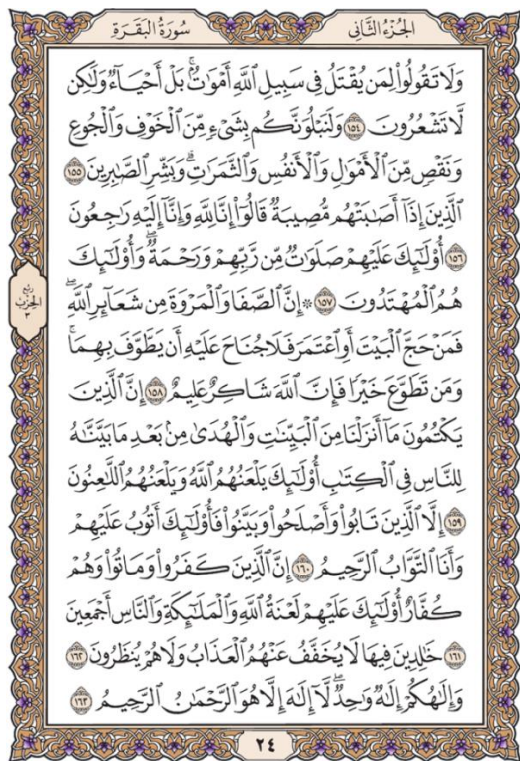 الجُزْءُ الثَّانِي
سُورَةُ البَقَرَةِ
وَلَا تَقُولُواْ لِمَن يُقْتَلُ فِي سَبِيلِ ٱللَّهِ أَمۡوَٰتُۢۚ بَلۡ أَحۡيَآءٞ وَلَٰكِن
لَّا تَشۡعُرُونَ ١٥٤ وَلَنَبۡلُوَنَّكُم بِشَيۡءٖ مِّنَ ٱلۡخَوۡفِ وَٱلۡجُوعِ
وَنَقۡصٖ مِّنَ ٱلۡأَمۡوَٰلِ وَٱلۡأَنفُسِ وَٱلثَّمَرَٰتِۗ وَبَشِّرِ ٱلصَّٰبِرِينَ ١٥٥
ٱلَّذِينَ إِذَآ أَصَٰبَتۡهُم مُّصِيبَةٞ قَالُوٓاْ إِنَّا لِلَّهِ وَإِنَّآ إِلَيۡهِ رَٰجِعُونَ
١٥٦ أُوْلَٰٓئِكَ عَلَيۡهِمۡ صَلَوَٰتٞ مِّن رَّبِّهِمۡ وَرَحۡمَةٞۖ وَأُوْلَٰٓئِكَ
هُمُ ٱلۡمُهۡتَدُونَ ١٥٧ ۞ إِنَّ ٱلصَّفَا وَٱلۡمَرۡوَةَ مِن شَعَآئِرِ ٱللَّهِۖ
فَمَنۡ حَجَّ ٱلۡبَيۡتَ أَوِ ٱعۡتَمَرَ فَلَا جُنَاحَ عَلَيۡهِ أَن يَطَّوَّفَ بِهِمَاۚ
وَمَن تَطَوَّعَ خَيۡرٗا فَإِنَّ ٱللَّهَ شَاكِرٌ عَلِيمٌ ١٥٨ إِنَّ ٱلَّذِينَ
يَكۡتُمُونَ مَآ أَنزَلۡنَا مِنَ ٱلۡبَيِّنَٰتِ وَٱلۡهُدَىٰ مِنۢ بَعۡدِ مَا بَيَّنَّٰهُ
لِلنَّاسِ فِي ٱلۡكِتَٰبِ أُوْلَٰٓئِكَ يَلۡعَنُهُمُ ٱللَّهُ وَيَلۡعَنُهُمُ ٱللَّٰعِنُونَ
١٥٩ إِلَّا ٱلَّذِينَ تَابُواْ وَأَصۡلَحُواْ وَبَيَّنُواْ فَأُوْلَٰٓئِكَ أَتُوبُ عَلَيۡهِمۡ
وَأَنَا ٱلتَّوَّابُ ٱلرَّحِيمُ ١٦٠ إِنَّ ٱلَّذِينَ كَفَرُواْ وَمَاتُواْ وَهُمۡ
كُفَّارٌ أُوْلَٰٓئِكَ عَلَيۡهِمۡ لَعۡنَةُ ٱللَّهِ وَٱلۡمَلَٰٓئِكَةِ وَٱلنَّاسِ أَجۡمَعِينَ
١٦١ خَٰلِدِينَ فِيهَا لَا يُخَفَّفُ عَنۡهُمُ ٱلۡعَذَابُ وَلَا هُمۡ يُنظَرُونَ ١٦٢
وَإِلَٰهُكُمۡ إِلَٰهٞ وَٰحِدٞۖ لَّآ إِلَٰهَ إِلَّا هُوَ ٱلرَّحۡمَٰنُ ٱلرَّحِيمُ ١٦٣
ربع
الحزب
٣
٢٤